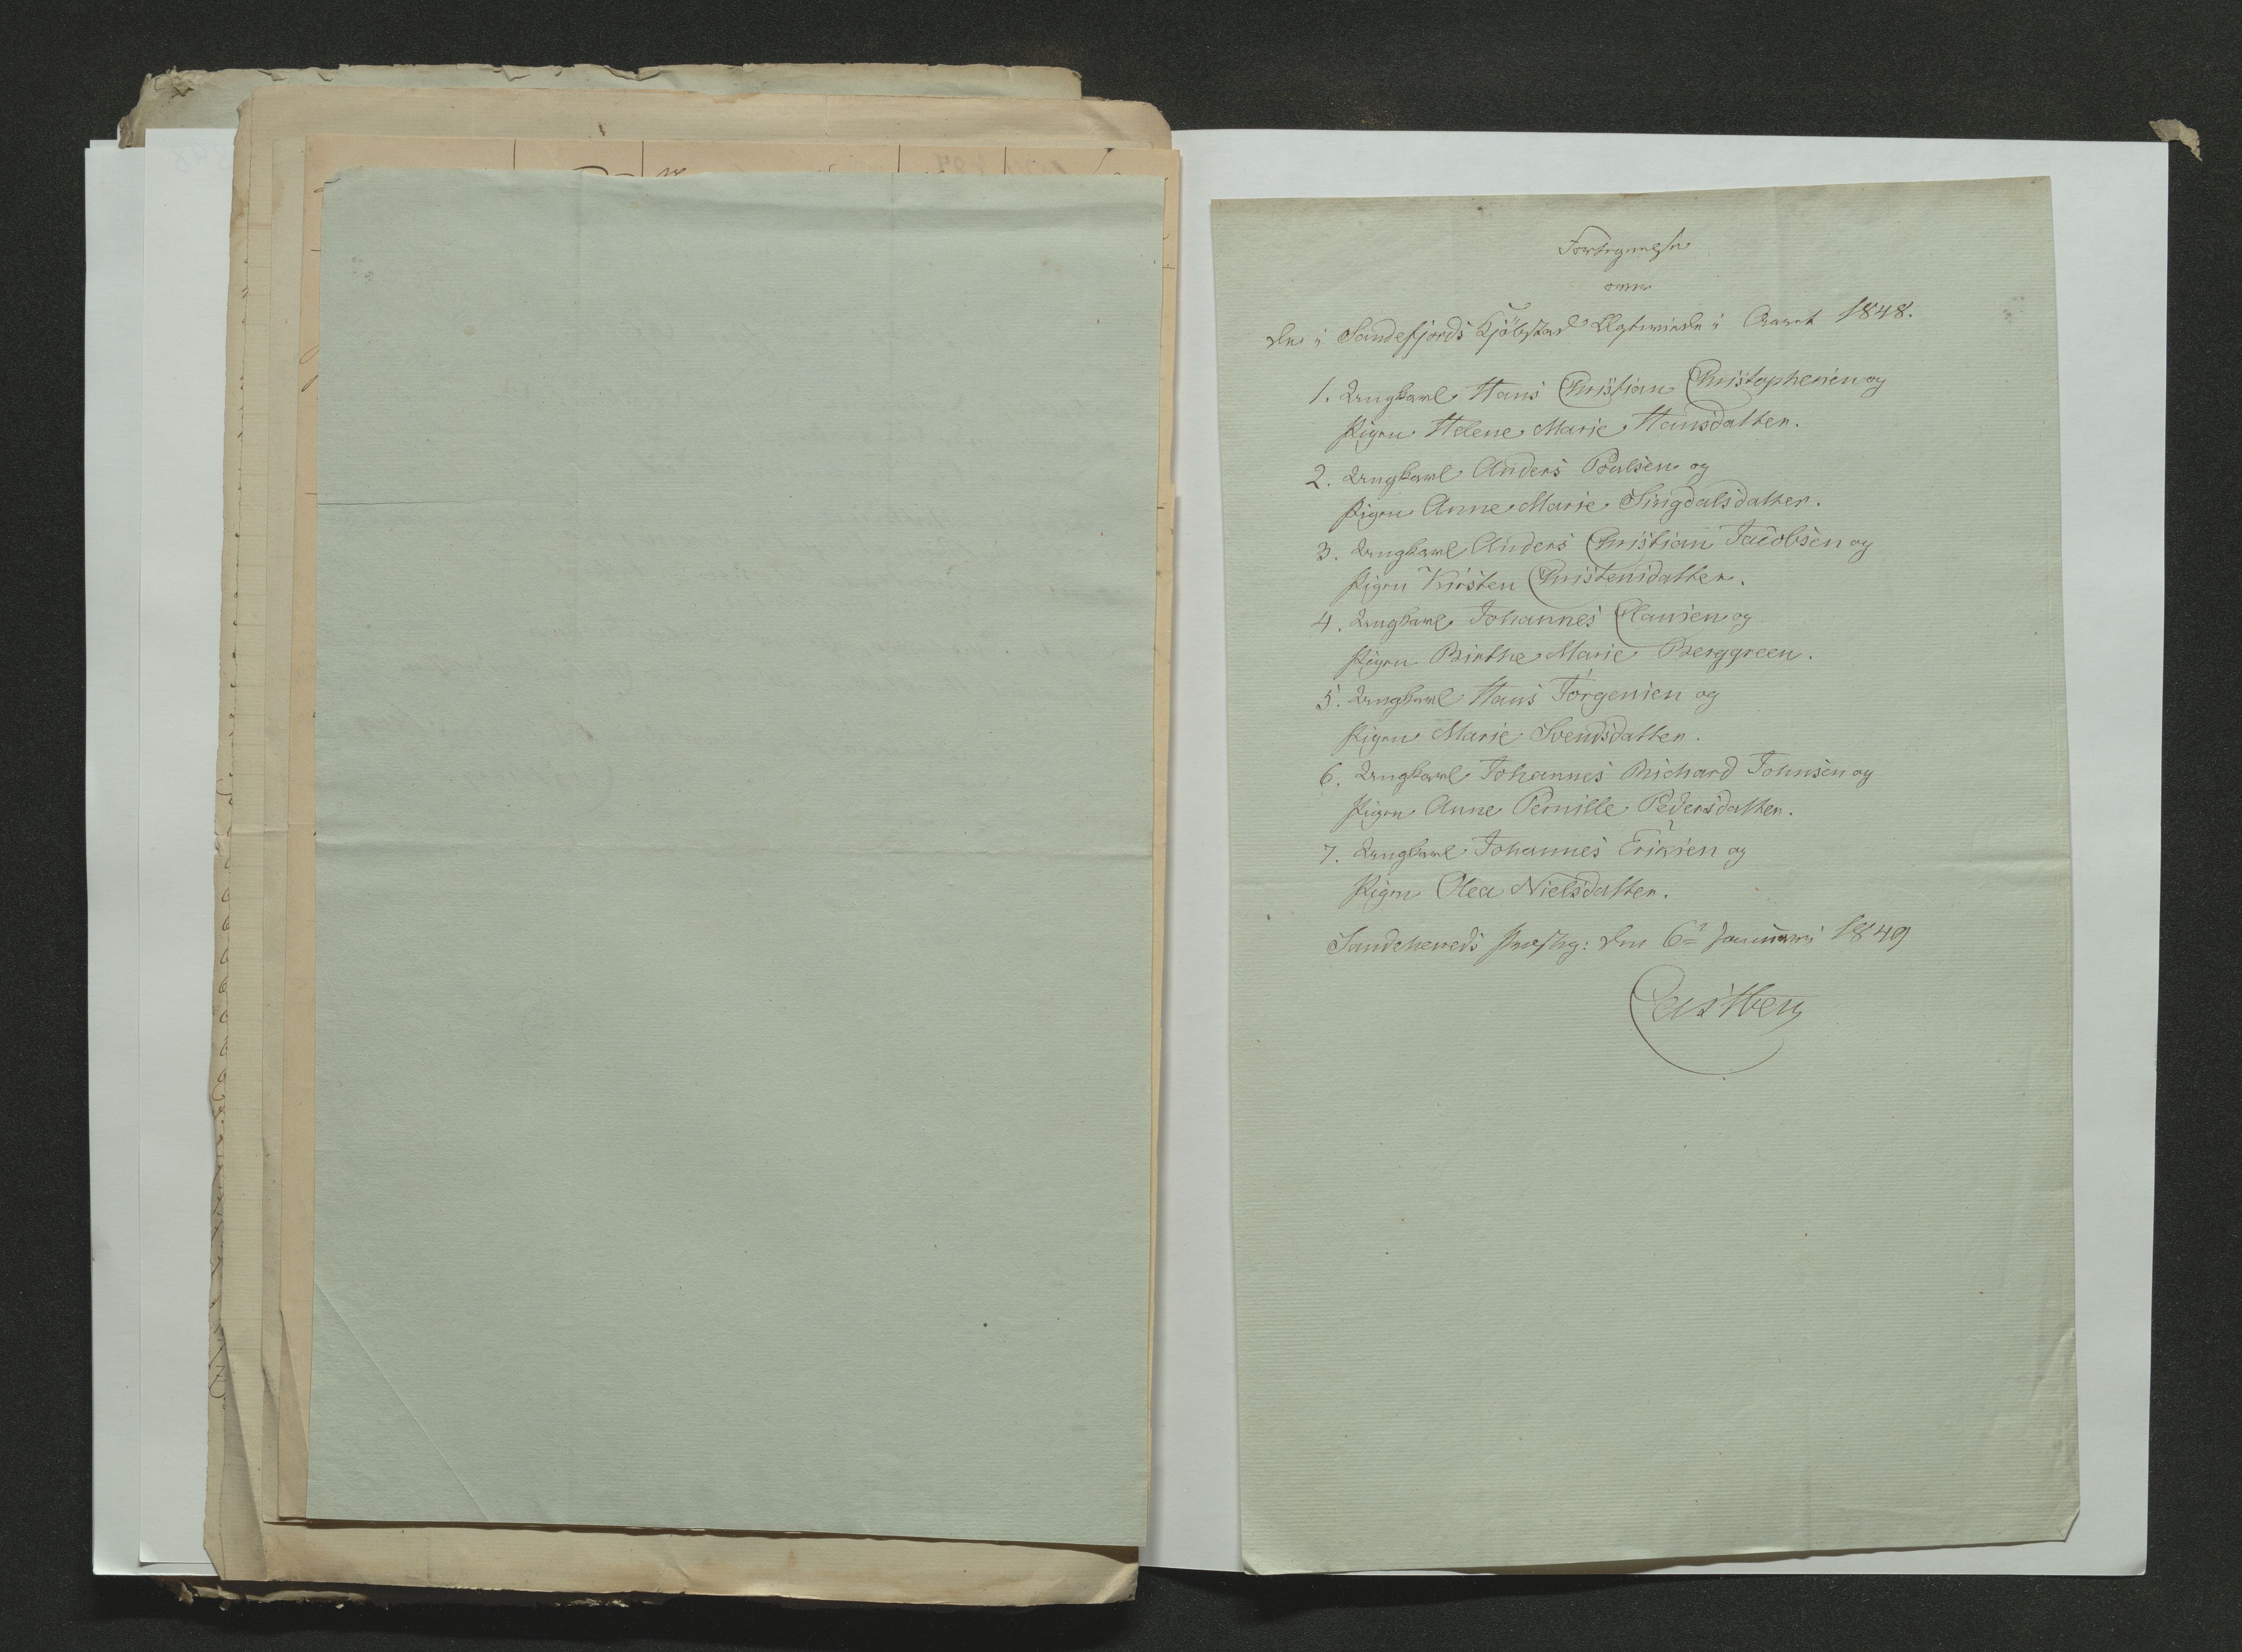 Fortegnelse
over
de i Sandefjords Kjöbstad Egteviede i Aaret 1848.
1. Ungkarl Hans Christian Christophersen og
Pigen Helene Marie Hansdatter.
2. Ungkarl Anders Poulsen og
Pigen Anne Marie Singdalsdatter.
3. Ungkarl Anders Christian Jacobsen og
Pigen Kirsten Christensdatter.
4. Ungkarl Johannes Clausen og
Pigen Birthe Marie Berggreen.
5. Ungkarl Hans Jörgensen og
Pigen Marie Svendsdatter.
6. Ungkarl Johannes Richard Johnsen og
Pigen Anne Pernille Pedersdatter.
7. Ungkarl Johannes Eriksen og
Pigen Olea Nielsdatter.
Sandeherreds Præstg: den 6 Januari 1849
Castberg